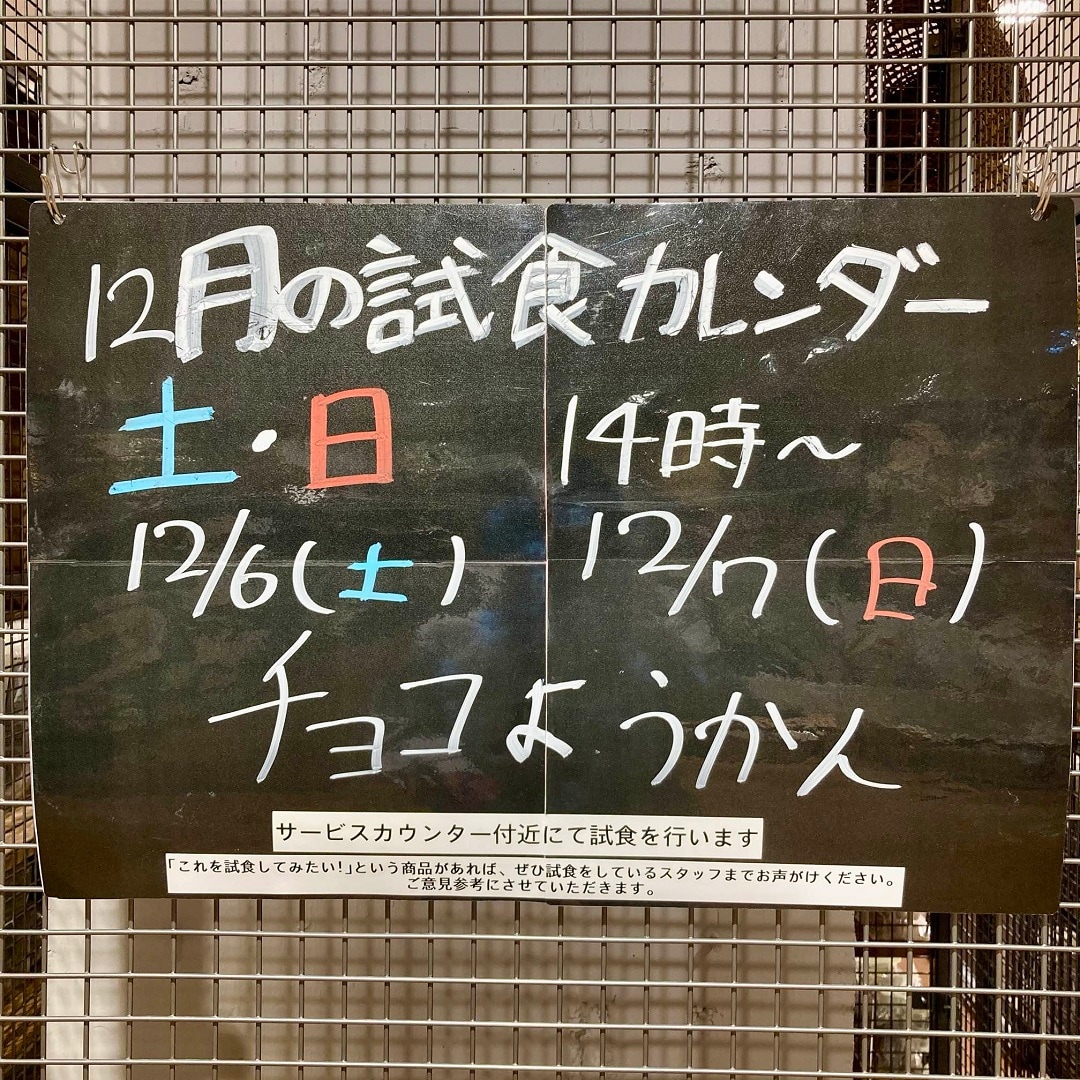 12月の試食カレンダー
土・日 14時～
12/6(土) 12/7(日)
チョコようかん
サービスカウンター付近にて試食を行います
「これを試食してみたい!」という商品があれば、ぜひ試食をしているスタッフまでお声がけください。
ご意見参考にさせていただきます。